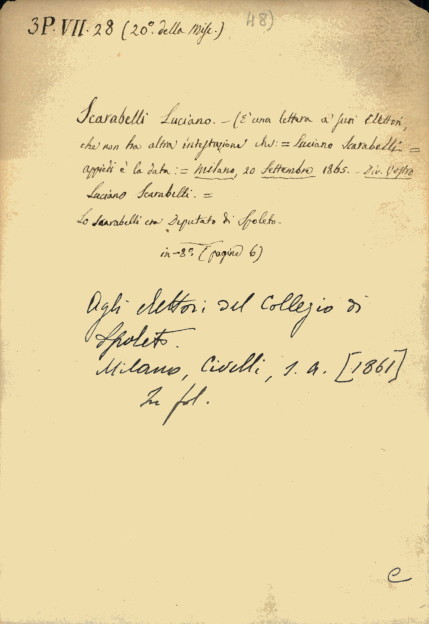 3P. VII. 28 (20º. della Misc.) 48)
Scarabelli Luciano. - (È una lettera a' suoi Elettori,
che non ha altra intestazione che: = Luciano Scarabelli =
appiedi è la data: = Milano, 20 Settembre 1865. - Div. Vostro
Luciano Scarabelli. =
Lo Scarabelli era Deputato di Spoleto.
in-8º. (pagine 6)
Agli elettori del Collegio di
Spoleto.
Milano, Civelli, s. a. [1861]
In fol.
C